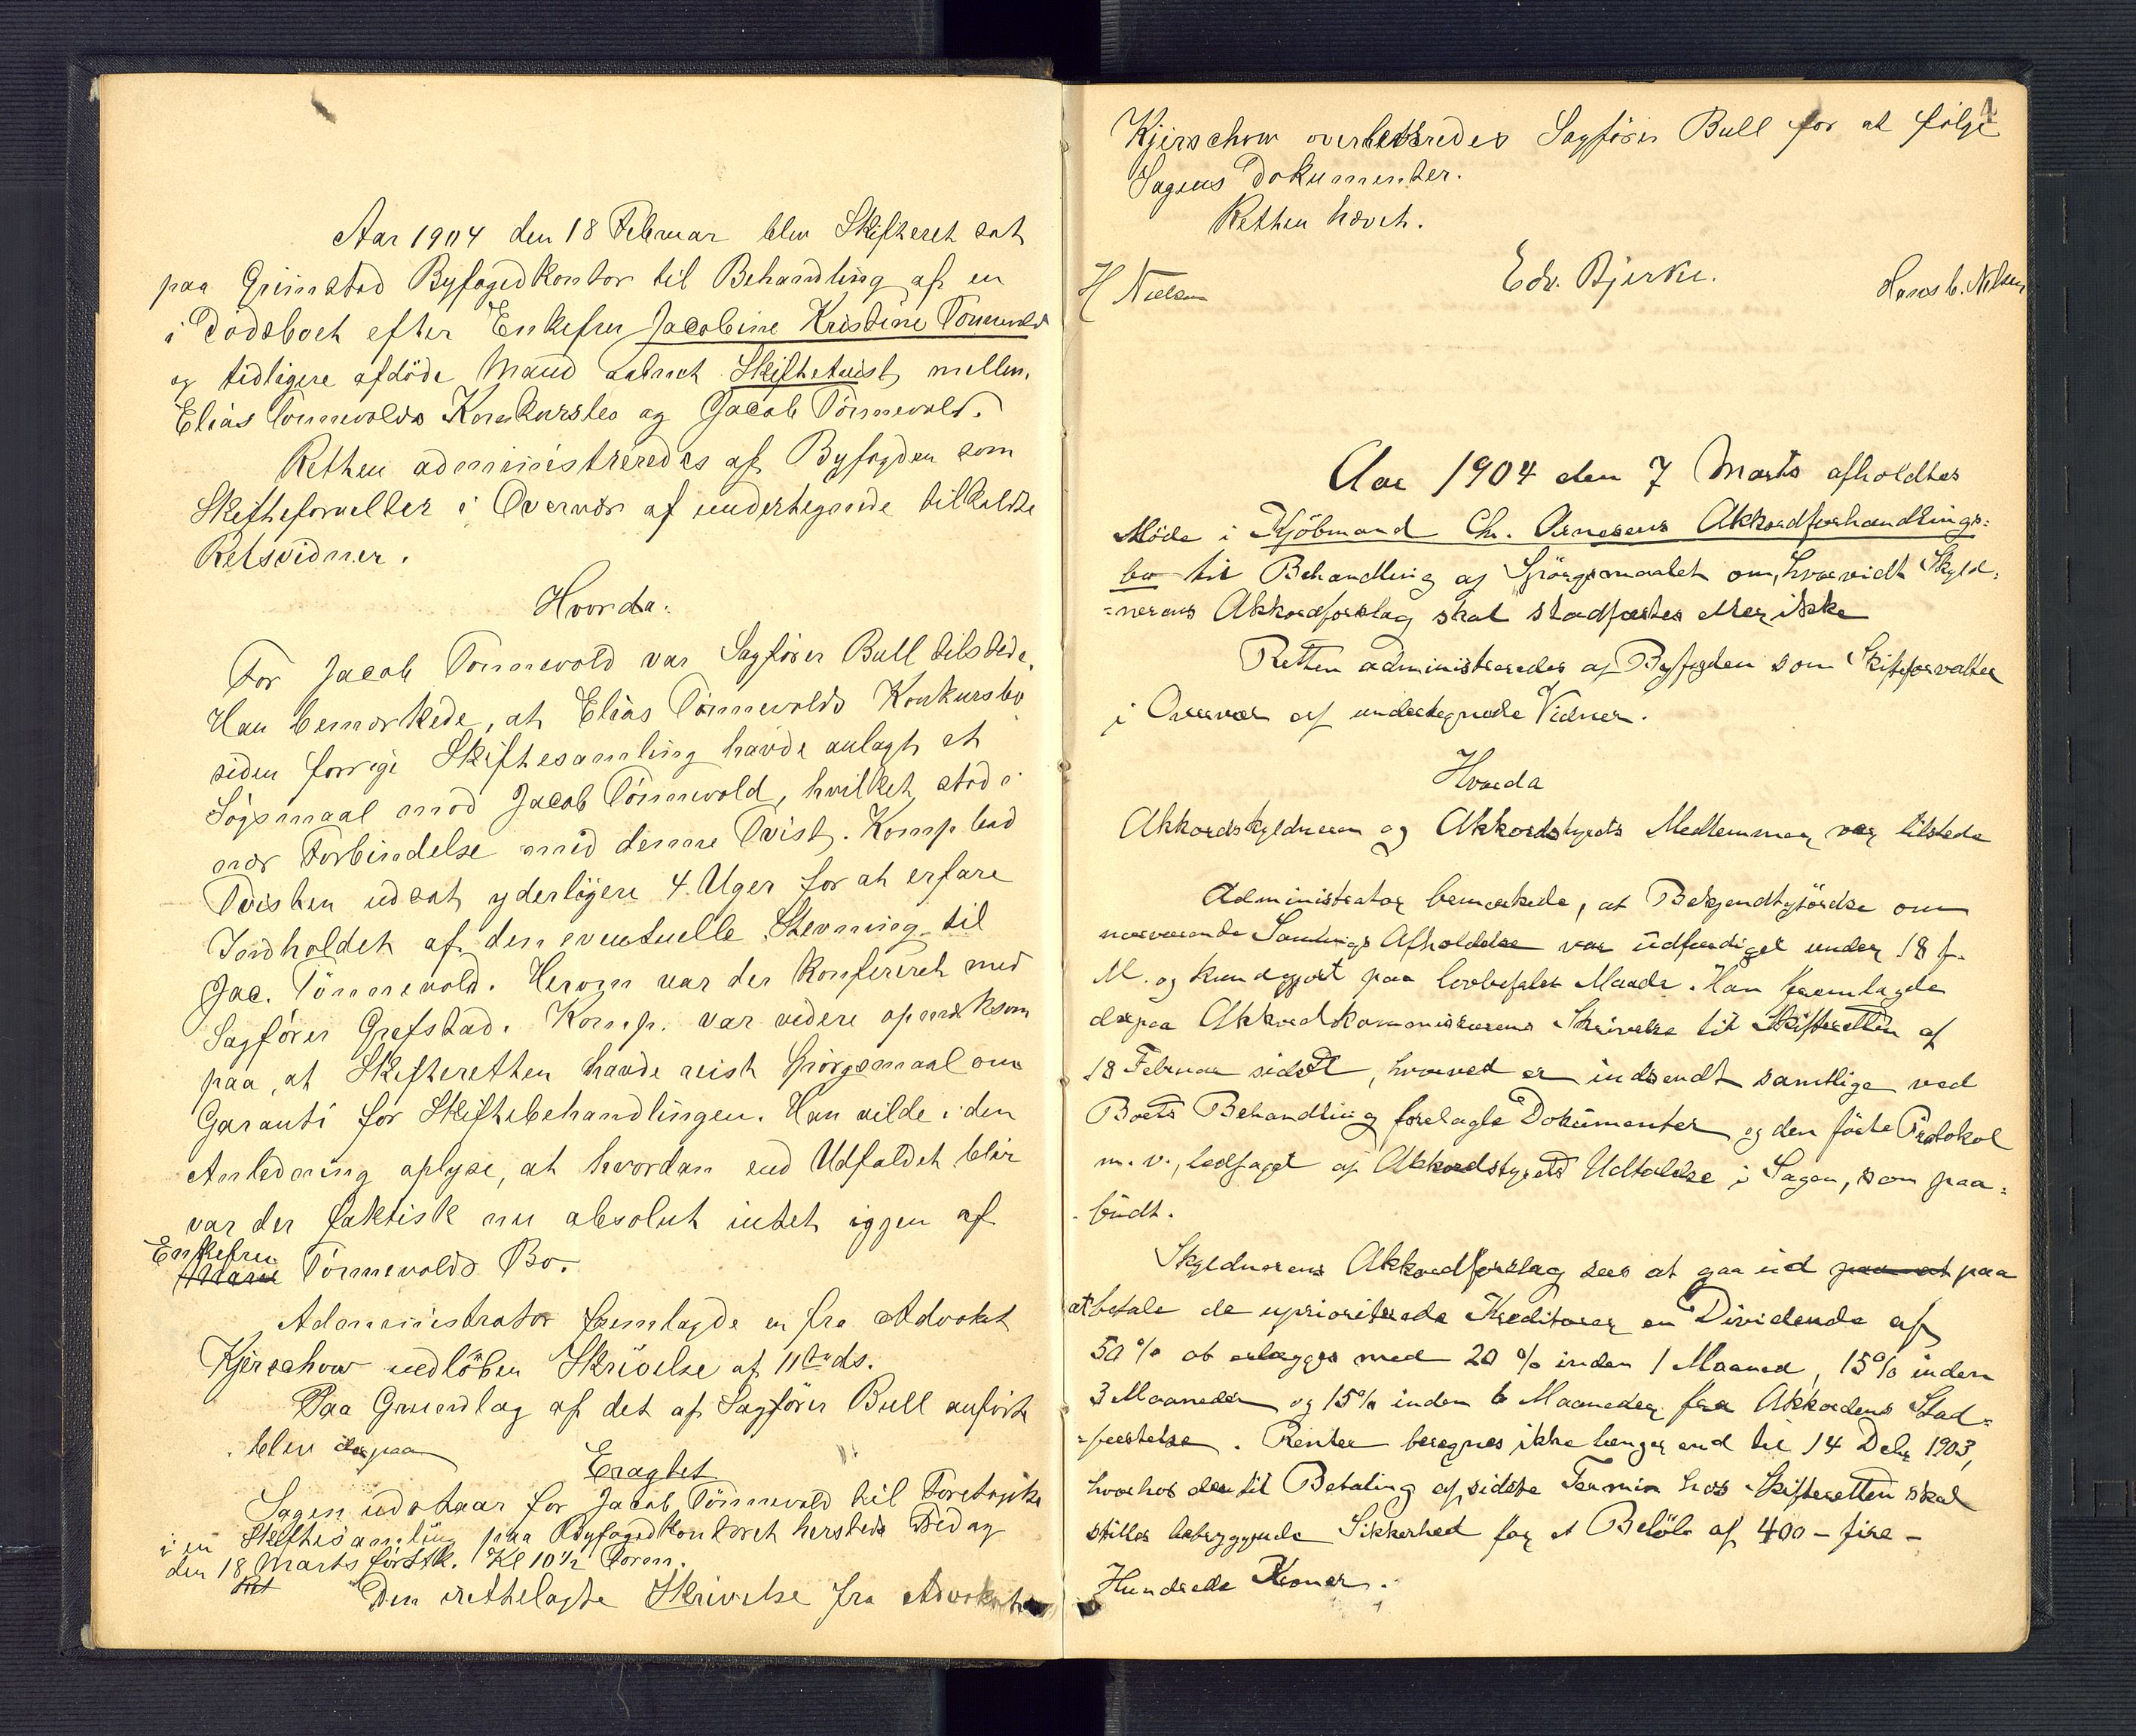 Aar 1904 den 18 Februar blev Skifteret sat
paa Grimstad Byfogedkontor til Behandling af en
i Dödsboet efter Enkefru Jacobine Kristine Tönnevold
og tidligere afdöde Mand aabnet Skiftetvist mellem
Elias Tönnevolds Konkursbo og Jacob Tönnevold.
Retten administreredes af Byfogden som
Skifteforvalter i Overvær af undertegnede tilkaldte
Retsvidner.
Hvorda:
For Jacob Tönnevold var Sagförer Bull tilstede.
Han bemærkede, at Elias Tönnevolds Konkursbo
siden forrige Skiftesamling havde anlagt et
Sögsmaal mod Jacob Tönnevold, hvilket stod i
nær Forbindelse med denne Tvist. Komp. bad
Tvisten udsat yderligere 4 Uger for at erfare
Indholdet af den eventuelle Stevning til
Jac. Tönnevold. Herom var der konfereret med
Sagförer Grefstad. Komp. var videre opmerksom
paa, at Skifteretten havde reist Spörgsmaal om
Garanti for Skiftebehandlingen. Han vilde i den
Anledning oplyse, at hvordan end Udfaldet blir
var der faktisk nu absolut intet igjen af
Enkefru
Marie Tönnevolds Bo.
Administrator fremlagde en fra Advokat
Kjerschow indlöben Skrivelse af 11te ds.
Paa Grundlag af det af Sagförer Bull anförte
blev derpaa
Eragtet
Sagen udstaar for Jacob Tönnevold til Foretagelse
i en Skiftesamling paa Byfogedkontoret hersteds Fredag
den 18 Marts förstk. Kl 10½ Form.
Ret
Den irettelagte Skrivelse fra Advokat
1
Kjerschow overleveredes Sagförer Bull for at fölge
Sagens Dokumenter.
Retten hævet.
Edv. Bjerke.
H Nielsen
Hans C. Nilsen
Aar 1904 den 7 Marts afholdtes
Möde i Kjöbmand Chr. Arnesens Akkordforhandlings=
bo til Behandling af Spörgsmaalet om, hvorvidt Skyld=
=nerens Akkordforslag skal stadfæstes eller ikke
Retten administreredes af Byfogden som Skifteforvalter
i Overvær af undertegnede Vidner.
Hvorda
Akkordskyldneren og Akkordstyrets Medlemmer var tilstede
Administrator bemerkede, at Bekjendtgjördse om
nærværende Samlings Afholdelse var udfærdiget under 18 f.
M. og kundgjort paa lovbefalet Maade. Han fremlagde
derpaa Akkordkommissærens Skrivelse til Skifteretten af
18 Februar sidstl, hvorved er indsendt samtlige ved
Boets Behandling forelagte Dokumenter og den förte Protokol
m. v., ledsaget af Akkordstyrets Udtalelse i Sagen, som paa=
=budt.
Skyldnerens Akkordforslag sees at gaa ud paa at paa
at betale de uprioriterede Kreditorer en Dividende af
50 % at erlægges med 20 % inden 1 Maaned, 15% inden
3 Maaneder og 15% inden 6 Maaneder fra Akkordens Stad=
=fæstelse. Renter beregnes ikke længer end til 14 Debr 1903,
hvorhos der til Betaling af sidste Termin hos Skifteretten skal
stilles betryggende Sikkerhed for et Belöb af 400 - fire -
Hundrede Kroner.